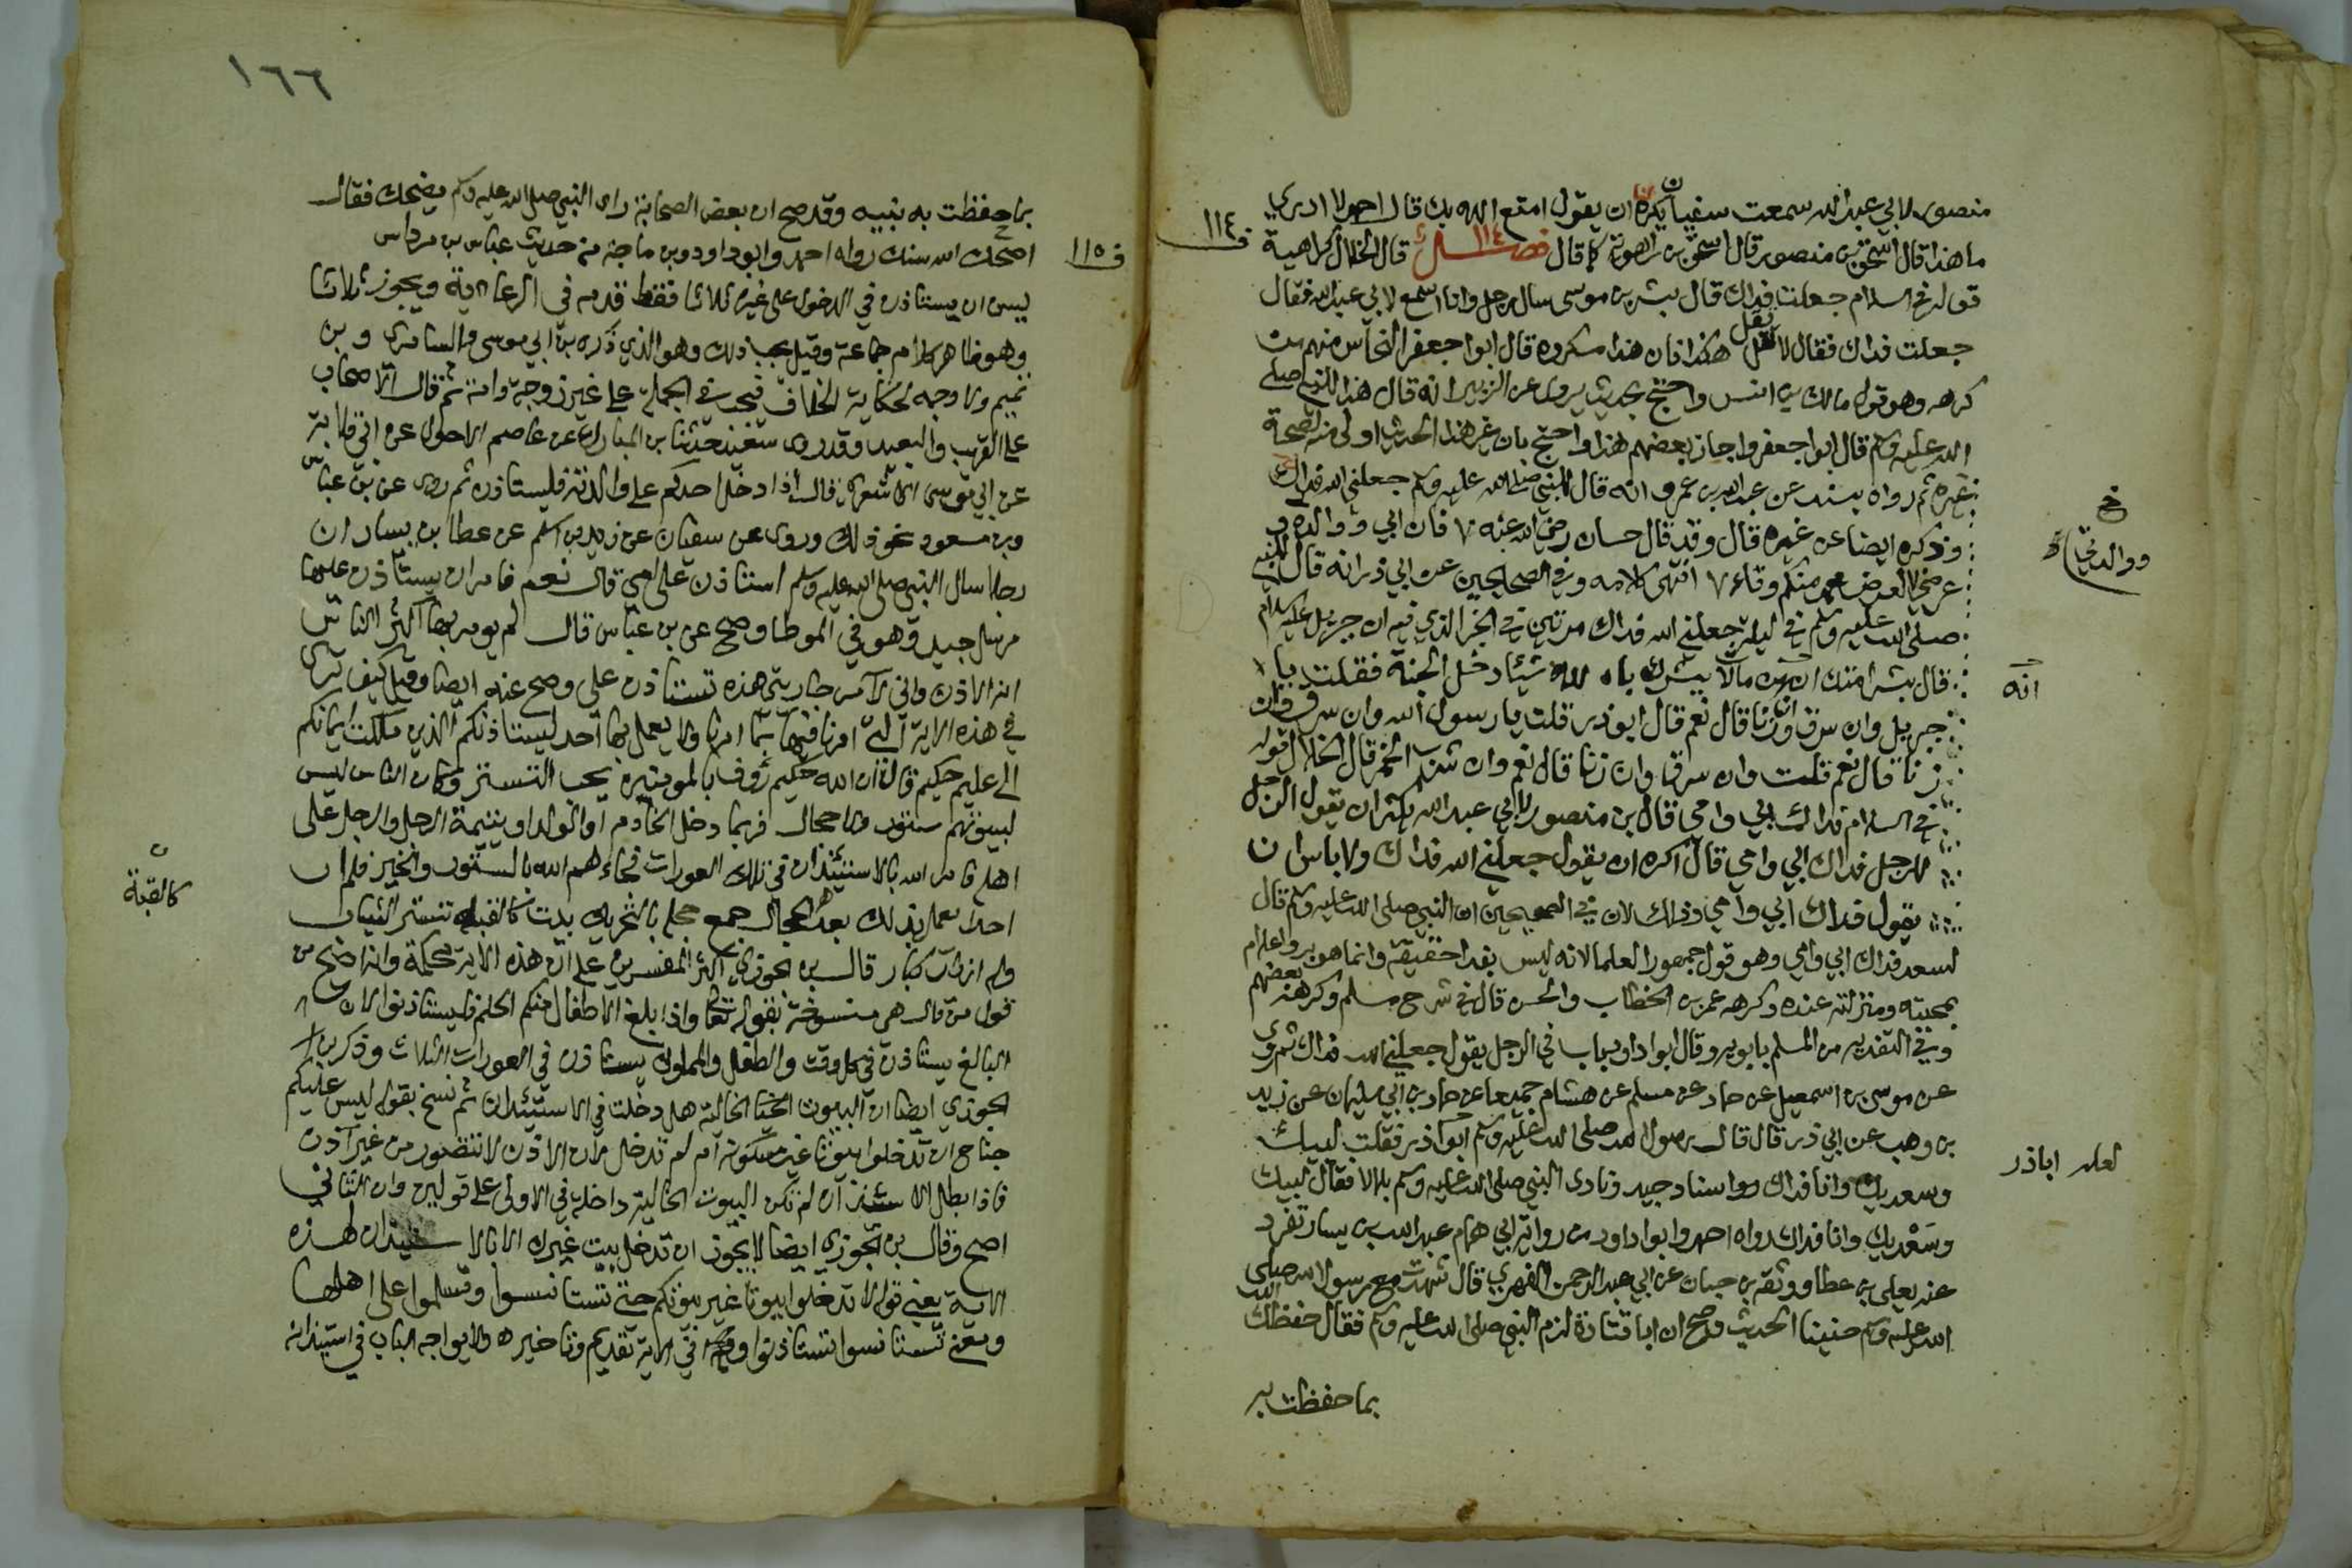 منصور لابي عبد الله سمعت سفيان يكره ان يقول امتع الله بك قال احمد لا ادري
ما هذا قال اسحق بن منصور قال اسحق بن راهويه كما قال فصل ١١٤ قال الخلال كراهية
قوله في السلام جعلت فداك قال بشر بن موسى سال رجل وانا اسمع لابي عبد الله فقال
جعلت فداك فقال لا تقل هكذا فان هذا مكروه قال ابوا جعفر النحاس منهم من
كرهه وهو قول مالك بن انس واحتج بحديث يروى عن الزبير انه قال هذا للنبي صلى
الله عليه وسلم قال ابوا جعفر واجاز بعضهم هذا واحتج بان غير هذا الحديث اولى منه لصحة
غيره ثم رواه بسند عن عبد الله بن عمرو انه قال للنبي صلى الله عليه وسلم جعلني الله فداك
وذكره ايضا عن غيره قال وقد قال حسان رضي الله عنه ٧ فان ابي ووالده و
عرضي لعرض محمد منكم وقاء ٧ انتهى كلامه وفي الصحيحين عن ابي ذر انه قال للنبي
صلى الله عليه وسلم في ليلة جعلني الله فداك مرتين في الخبر الذي فيه ان جبريل عليه السلام
قال بشر امتك ان من مات لا يشرك بالله شيئا دخل الجنة فقلت يا
جبريل وان سرق وان زنا قال نعم قال ابوذر قلت يا رسول الله وان سرق وان
زنا قال نعم قلت وان سرق وان زنا قال نعم وان شرب الخمر قال الخلال قوله
في السلام فداك ابي وامي قال بن منصور لابي عبد الله يكره ان يقول الرجل
للرجل فداك ابي وامي قال اكره ان يقول جعلني الله فداك ولا باس ان
يقول فداك ابي وامي وذلك لان في الصحيحين ان النبي صلى الله عليه وسلم قال
لسعد فداك ابي وامي وهو قول جمهور العلما لانه ليس بفدا حقيقة وانما هو بر واعلام
بمحبته ومنزلته عنده وكرهه عمر بن الخطاب والحسن قال في شرح مسلم وكرهه بعضهم
وفي التفدية من المسلم بابويه وقال ابوا داود باب في الرجل يقول جعلني الله فداك ثم روى
عن موسى بن اسمعيل عن حماد عن مسلم عن هشام جميعا عن حماد بن ابي سليمان عن زيد
بن وهب عن ابي ذر قال قال رسول الله صلى الله عليه وسلم ابوا ذر فقلت لبيك
وسعديك وانا فداك واسناد جيد ونادى النبي صلى الله عليه وسلم بلالا فقال لبيك
وسعديك وانا فداك رواه احمد وابوا داود من رواية ابي همام عبد الله بن يسار تفرد
عنه يعلى بن عطا ووثقه بن حبان عن ابي عبد الرحمن الفهري قال شهدت مع رسول الله صلى
الله عليه وسلم حنينا الحديث وصح ان ابا قتادة لزم النبي صلى الله عليه وسلم فقال حفظك الله
بما حفظت به
ف ١١٤
خ
ووالدتي
انه
لعله اباذر
١٦٦
بما حفظت به نبيه وقد صح ان بعض الصحابة راى النبي صلى الله عليه وسلم يضحك فقال
اضحك الله سنك رواه احمد وابو داود وبن ماجة من حديث عباس بن مرداس
يسن ان يستاذن في الدخول على غيره ثلاثا فقط قدمه في الرعاية ويجوز ثلاثا
وهو ظاهر كلام جماعة وقيل يجب ذلك وهو الذي ذكره بن ابي موسى والسامري وبن
تميم ولا وجه لحكاية الخلاف فيجب في الجملة على غير زوجة وامة ثم قال الاصحاب
على القريب والبعيد وقد روى سعيد حدثنا بن المبارك عن عاصم الاحول عن ابي قلابة
عن ابي موسى الاشعري قال اذا دخل احدكم على والدته فليستاذن ثم روى عن بن عباس
وبن مسعود نحو ذلك وروى عن سفيان عن زيد بن اسلم عن عطا بن يسار ان
رجلا سال النبي صلى الله عليه وسلم استاذن على امي قال نعم فامر ان يستاذن عليها
مرسل جيد وهو في الموطا وصح عن بن عباس قال لم يومر بها اكثر الناس
اية الاذن واني لآمر جاريتي هذه تستاذن علي وصح عنه ايضا وقيل كيف ترى
في هذه الاية التي امرنا فيها بما امرنا ولا يعمل بها احد ليستاذنكم الذين ملكت ايمانكم
الى عليم حكيم قال ان الله حكيم رؤف بالمومنين يحب التستر وكان الناس ليس
لبيوتهم ستور ولا حجال فربما دخل الخادم او الولد او يتيمة الرجل والرجل على
اهله فامر الله بالاستئذان في تلك العورات فجاءهم الله بالستور والخير فلم ار
احدا يعمل بذلك بعد الحجال جمع حجلة بالتحريك بيت كالقبة تستر بالثياب
وله ازرار كبار قال بن الجوزي اكثر المفسرين على ان هذه الاية محكمة وانه اصح من
قول من قال هي منسوخة بقوله تعالى واذا بلغ الاطفال منكم الحلم فليستاذنوا لان
البالغ يستاذن في كل وقت والطفل والمملوك يستاذن في العورات الثلاث وذكر بن
الجوزي ايضا ان البيوت الخالية هل دخلت في الاستئذان ثم نسخ بقوله ليس عليكم
جناح ان تدخلوا بيوتا غير مسكونة ام لم تدخل لان الاذن لا يتصور من غير آذن
فاذا بطل الاستئذان لم تكن البيوت الخالية داخلة في الاولى على قولين وان الثاني
اصح وقال بن الجوزي ايضا لا يجوز ان تدخل بيت غيرك الا بالاستيذان لهذه
الاية يعني قوله لا تدخلوا بيوتا غير بيوتكم حتى تستانسوا وتسلموا على اهلها
ومعنى تستانسوا تستاذنوا وقيل في الاية تقديم وتاخير ولا يواجه الباب في استيذانه
ف ١١٥
كالقبة